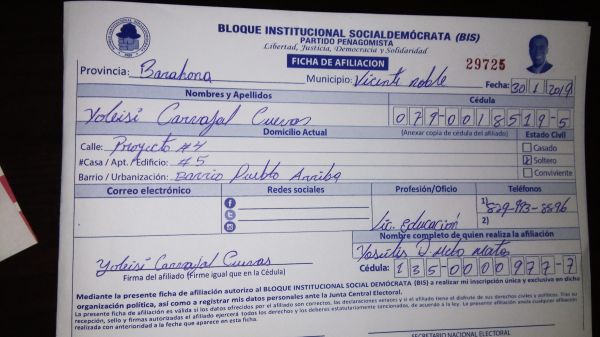 BLOQUE INSTITUCIONAL SOCIALDEMÓCRATA (BIS)
PARTIDO PEÑAGOMISTA
Libertad, Justicia, Democracia y Solidaridad
FICHA DE AFILIACION
29725
Provincia: Barahona Municipio: Vicente noble Fecha: 30 1 2019
Nombres y Apellidos Cédula
Yoleisi Carvajal Cuevas 079-0018519-5
Domicilio Actual (Anexar copia de cédula del afiliado) Estado Civil
Calle: Proyecto #4 Casado
#Casa / Apt. / Edificio: #5 Soltero
Barrio / Urbanización: Barrio Pueblo Arriba Conviviente
Correo electrónico Redes sociales Profesión/Oficio Teléfonos
1) 829-993-8896
2)
Lic. Educación
Nombre completo de quien realiza la afiliación
Yoleisi Carvajal Cuevas
Firma del afiliado (Firme igual que en la Cédula) Cédula: 135-0000977-7
Mediante la presente ficha de afiliación autorizo al BLOQUE INSTITUCIONAL SOCIAL DEMÓCRATA (BIS) a realizar mi inscripción única y exclusiva en dicha
organización política, así como a registrar mis datos personales ante la Junta Central Electoral.
La presente ficha de afiliación es válida si los datos ofrecidos por el afiliado son correctos, las declaraciones veraces y si el afiliado tiene el disfrute de sus derechos civiles y políticos. Tras su
recepción, sello y firmas autorizadas el afiliado ejercerá todos los derechos y los deberes estatutariamente sancionados, de acuerdo a la ley. La presente afiliación anula cualquier afiliación
realizada con anterioridad a la fecha que aparece en esta ficha.
SECRETARIO NACIONAL ELECTORAL